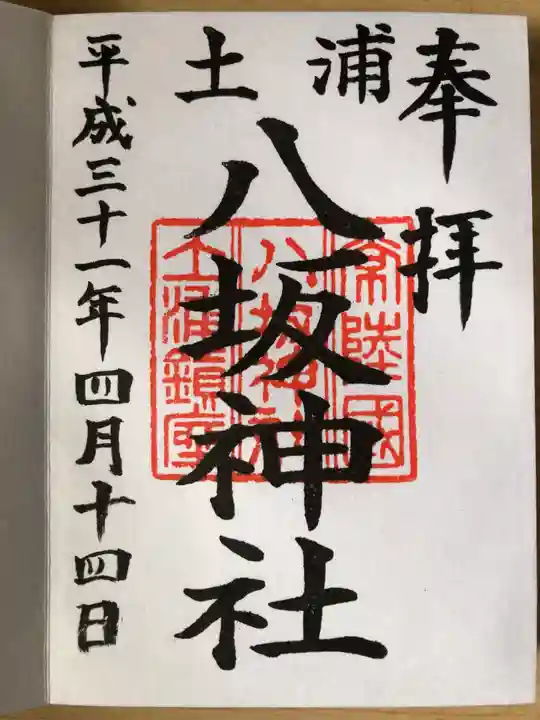 奉拝
土浦
八坂神社
常陸國
八坂神社
土浦鎮座
平成三十一年四月十四日